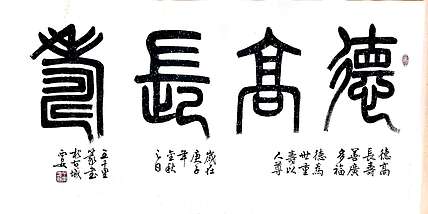 德高長壽
德高
長壽
善廣
多福
德為
世重
壽以
人尊
歲在
庚子
年
金秋
之日
篆書
於古城
西安